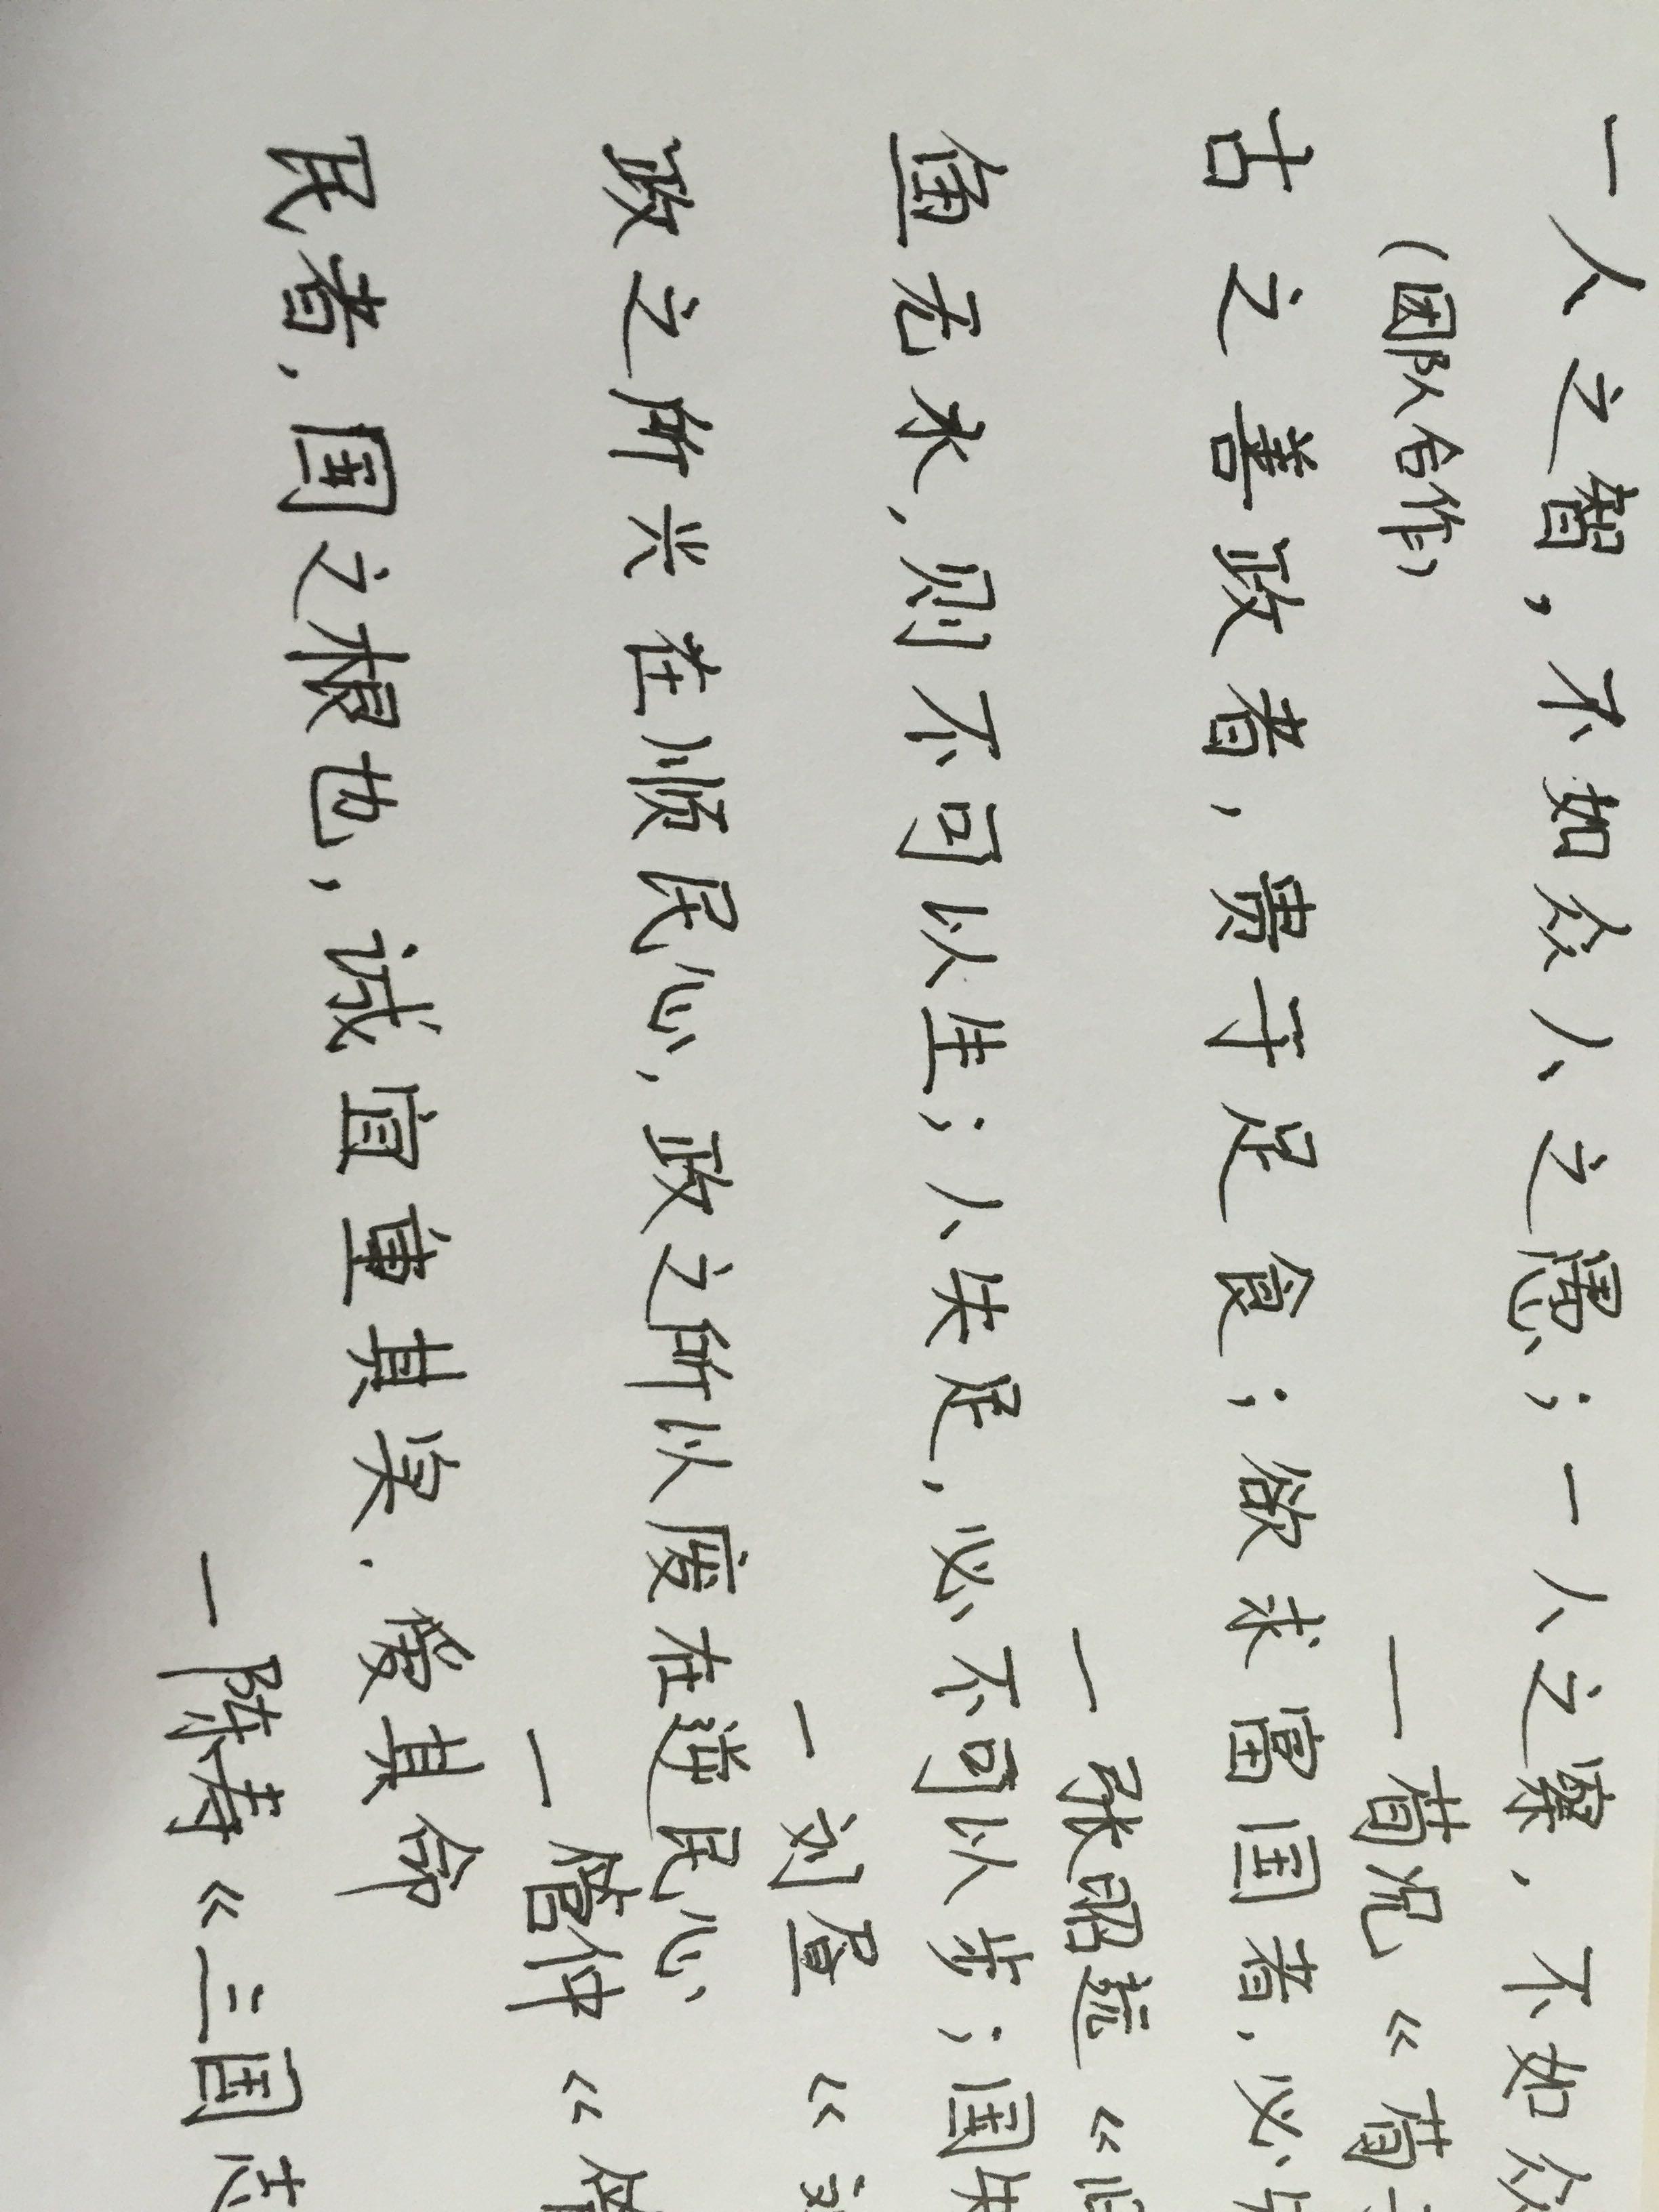 一人之智,不如众人之愚;一人之察,不如众
(团队合作) —荀况《荀
古之善政者,贵于足食;欲求富国者,必
—张昭远《旧
鱼无水,则不可以生;人失足,必不可以步;国失
—刘昼《刘
政之所兴在顺民心,政之所以废在逆民心
—管仲《管
民者,国之根也,诚宜重其食,爱其命
—陈寿《三国志